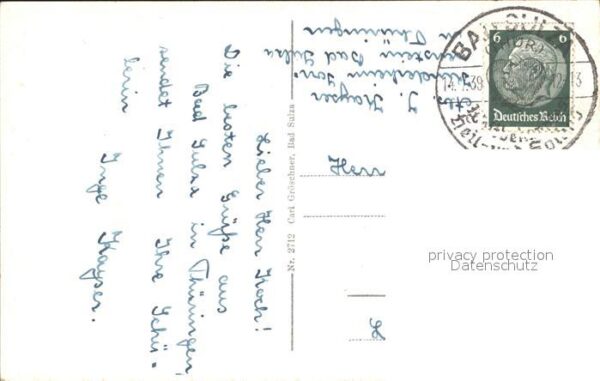 Lieber Herr Koch!
Die besten Grüße aus
Bad Sulza in Thüringen,
sendet Ihnen Ihre Schü-
lerin Inge Kayser.
J. Kayser
Bad Sulza
in Thüringen
Nr. 2712 Carl Gröschner, Bad Sulza
Herr
BAD SULZA
6 6
Deutsches Reich
privacy protection
Datenschutz